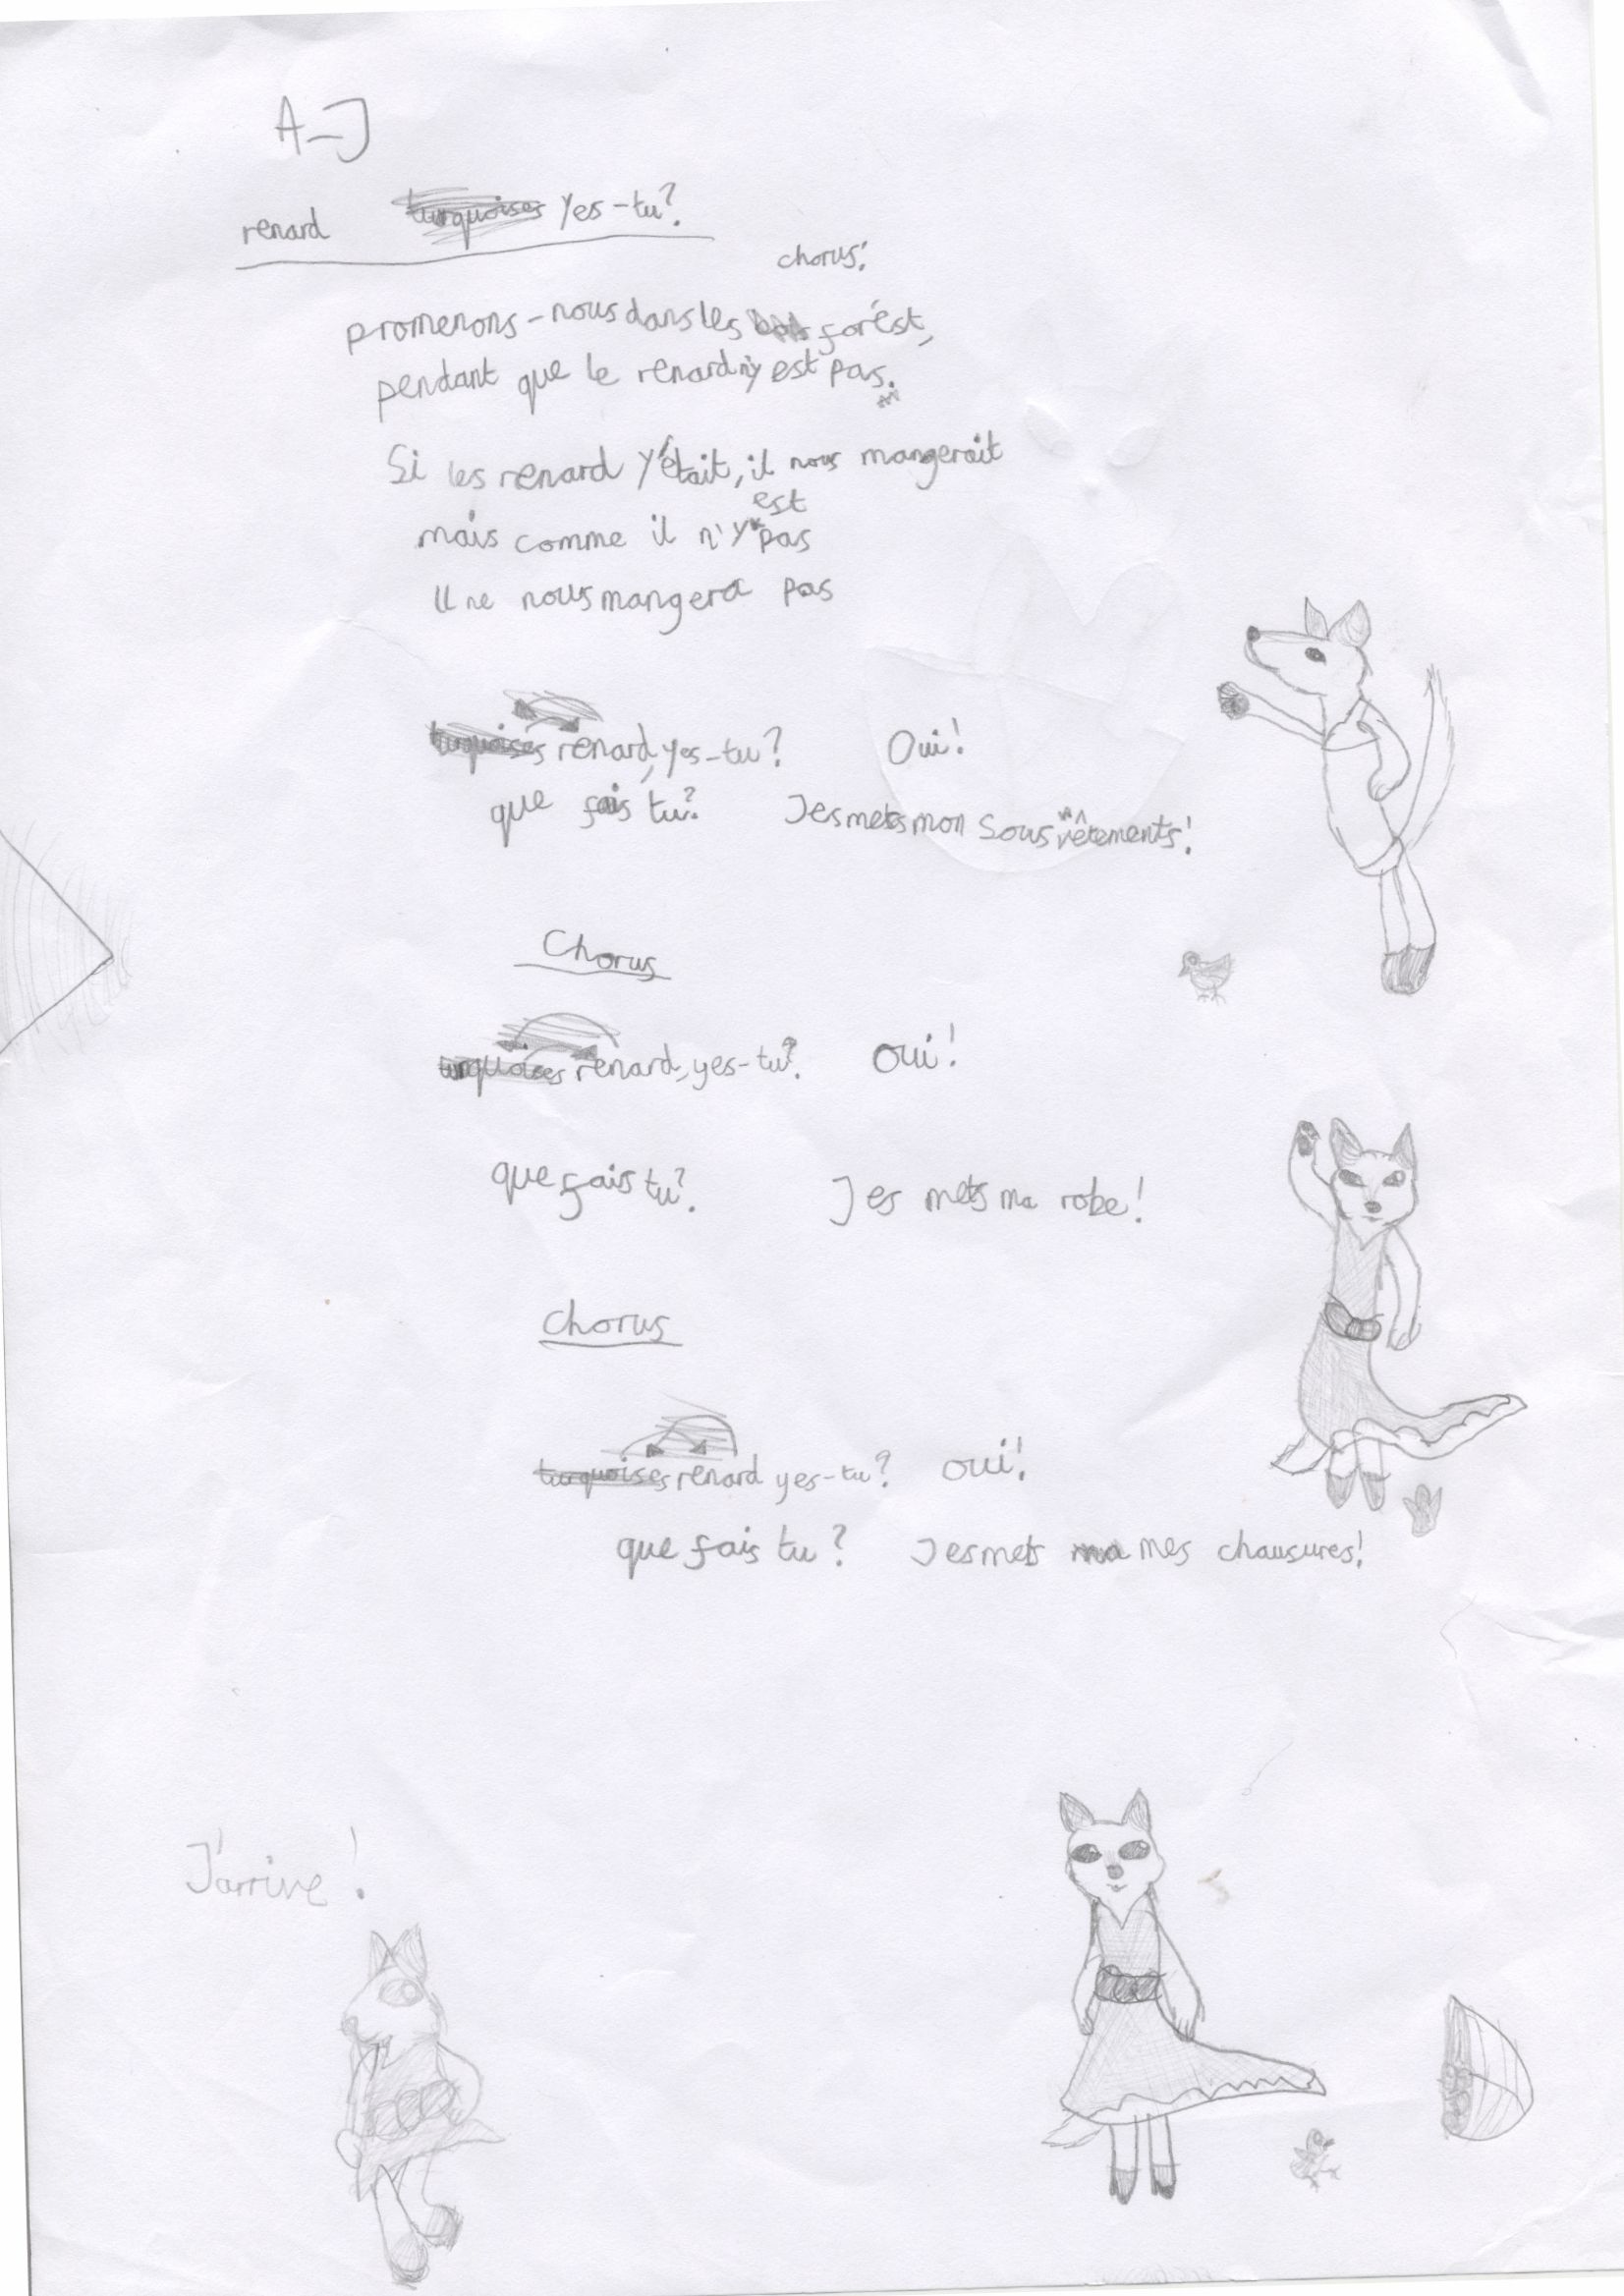 A-J
renard turquoises yes-tu?
chorus!
promenons-nous dans les bois forést,
pendant que le renard n'y est pas.
Si les renard y'était, il nous mangerait
est
mais comme il n'y pas
Il ne nous mangera pas
turquoises renard, yes-tu? Oui!
que fais tu? Jes mets mon sous vêtements!
Chorus
turquoises renard, yes-tu? Oui!
que fais tu? Jes mets ma robe!
chorus
turquoises renard yes-tu? oui!
que fais tu? Jes mets ma mes chausures!
J'arrive!